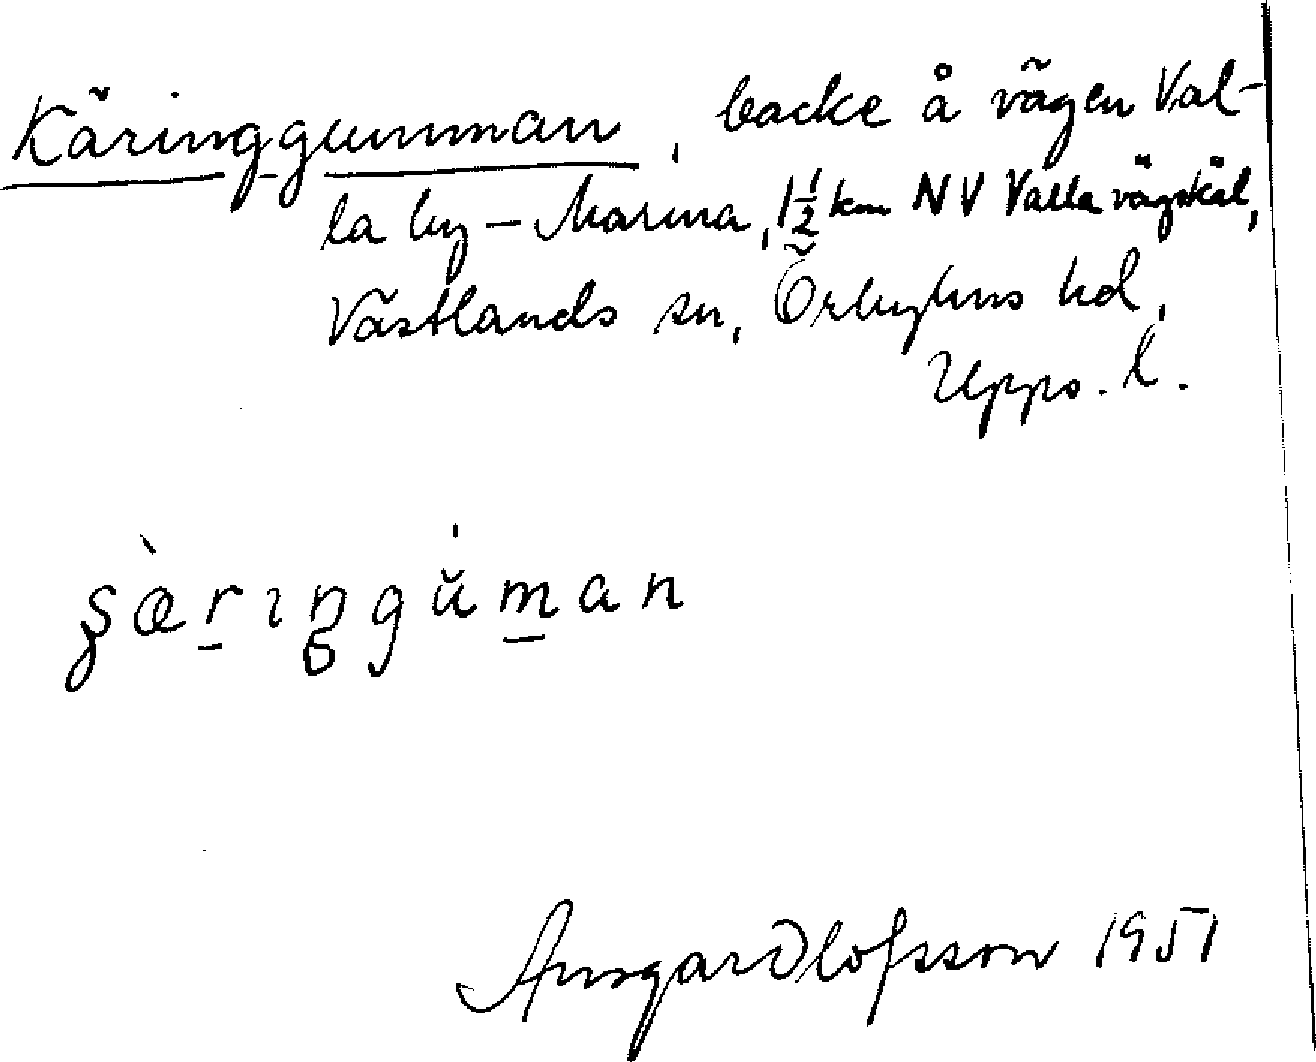 Käringgumman, backe å vägen Val-
la by – Marma, 1½ km NV Valla vägskäl,
Västlands sn, Örbyhus hd,
Upps. l.
Ansgar Olofsson 1951